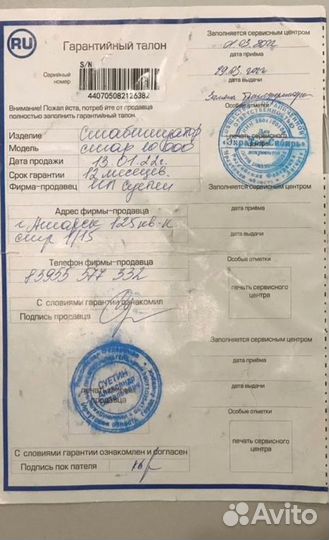 RU
Гарантийный талон
S/N
Серийный номер
44070508212638
Внимание! Пожал йста, потреб йте от продавца
полностью заполнить гарантийный талон.
Изделие Стабилизатор
Модель смар 10 000
Дата продажи 13.01.22г.
Срок гарантии 12 месяцев.
Фирма-продавец ИП Суетин
Адрес фирмы-продавца
г. Ангарск 125 кв-л
стр 1/15
Телефон фирмы-продавца
83955 577 332
С словиями гарантии ознакомил
Подпись продавца
печать
продавца
СУЕТИН
С словиями гарантии ознакомлен и согласен
Подпись пок пателя
Заполняется сервисным центром
01.03.2022
дата приёма
29.03.2022
дата выдачи
Замена Трансформатора
Особые отметки
печать сервисного
центра
Заполняется сервисным центром
дата приёма
дата выдачи
Особые отметки
печать сервисного
центра
Заполняется сервисным центром
дата приёма
дата выдачи
Особые отметки
печать сервисного
центра
Avito